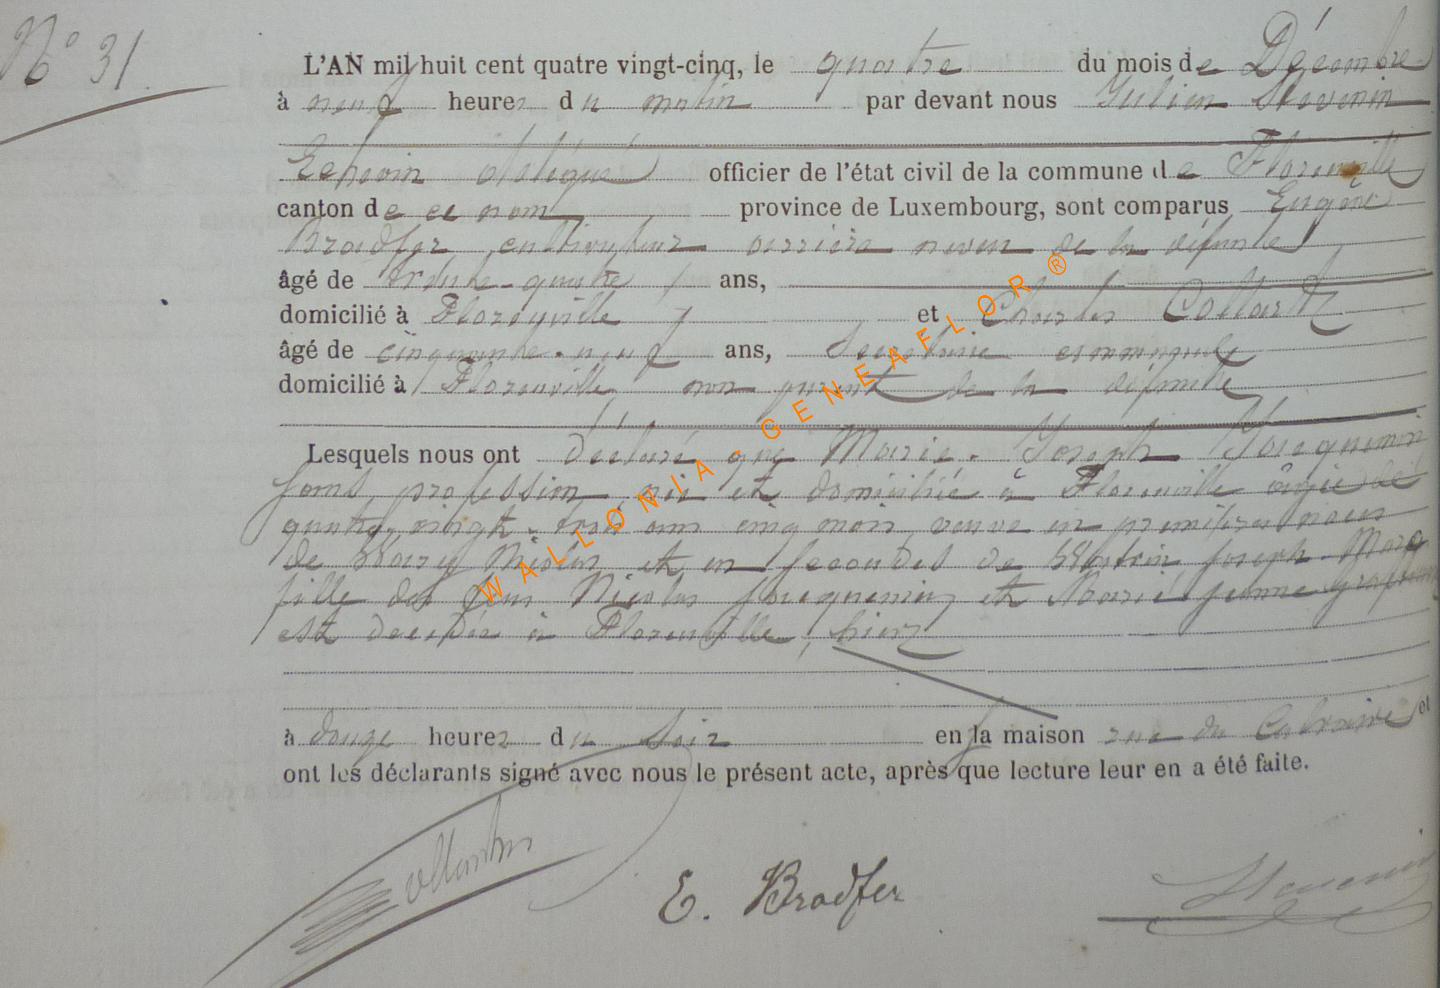 N° 31.
L'AN mil huit cent quatre vingt-cinq, le quatre du mois de Décembre
à neuf heures du matin par devant nous Julien Stevenin
Echevin délégué officier de l'état civil de la commune de Florenville
canton de ce nom province de Luxembourg, sont comparus Eugène
Bradfer cultivateur arrière neveu de la défunte
âgé de trente-quatre ans,
domicilié à Florenville et Charles Collard
âgé de cinquante-neuf ans, Secrétaire communale
domicilié à Florenville non parent de la défunte
Lesquels nous ont déclaré que Marie-Joseph Jacquemin
sans profession née et domiciliée à Florenville âgée de
quatre-vingt-trois ans cinq mois, veuve en premières noces
de Nicolas et en secondes de Joseph
fille de feus Nicolas Jacquemin et Marie Jeanne
est décédée à Florenville, hier
à douze heures du soir en la maison rue du Calvaire et
ont les déclarants signé avec nous le présent acte, après que lecture leur en a été faite.
E. Bradfer
Stevenin
WALLONIA-GENEAFLOR®